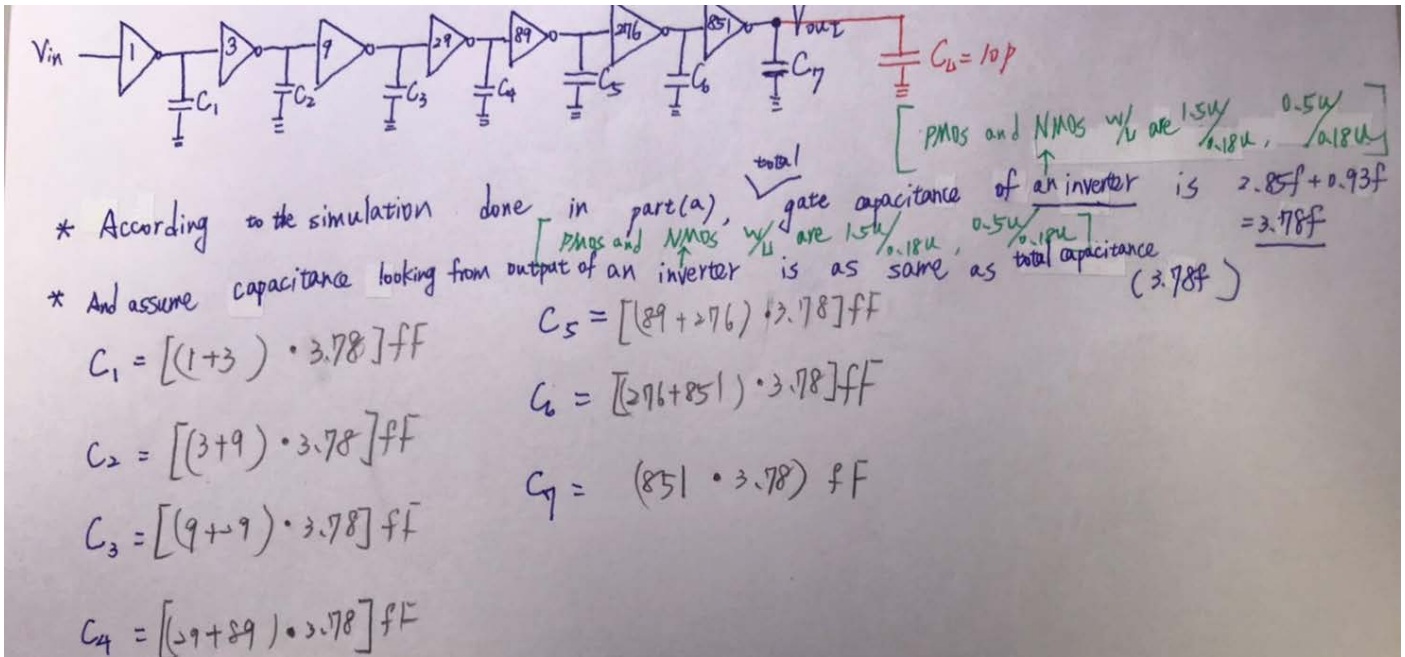 Vin 1 3 9 29 89 276 851 Vout
C1 C2 C3 C4 C5 C6 C7 CL = 10p
[PMOS and NMOS W/L are 1.5u/0.18u, 0.5u/0.18u]
total
* According to the simulation done in part(a), gate capacitance of an inverter is 2.85f+0.93f
[PMOS and NMOS W/L are 1.5u/0.18u, 0.5u/0.18u] = 3.78f
* And assume capacitance looking from output of an inverter is as same as total capacitance (3.78f)
C1 = [(1+3) · 3.78] fF
C2 = [(3+9) · 3.78] fF
C3 = [(9+29) · 3.78] fF
C4 = [(29+89) · 3.78] fF
C5 = [(89+276) · 3.78] fF
C6 = [(276+851) · 3.78] fF
C7 = (851 · 3.78) fF